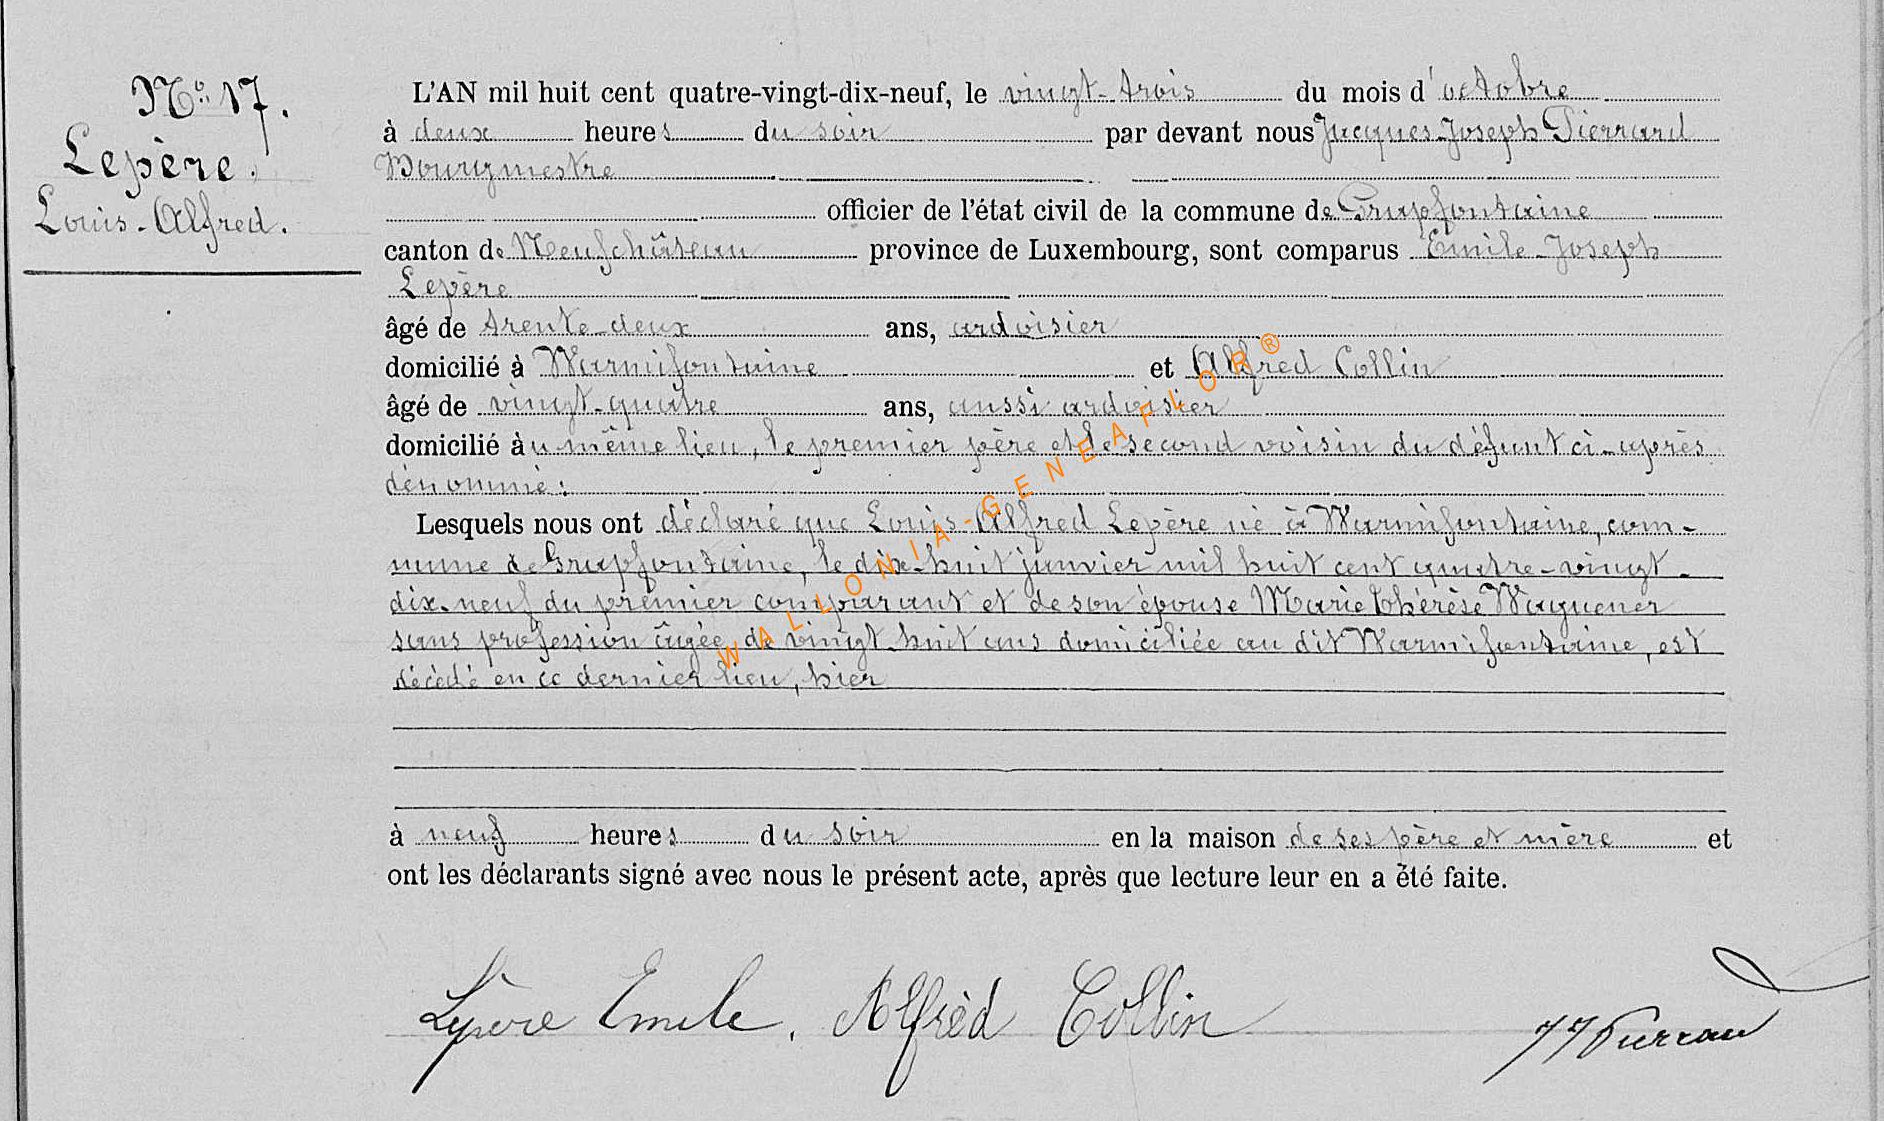 N° 17.
Lepère.
Louis-Alfred.
L'AN mil huit cent quatre-vingt-dix-neuf, le vingt-trois du mois d'octobre
à deux heures du soir par devant nous Jacques-Joseph Pierrard
Bourgmestre
officier de l'état civil de la commune de Grapfontaine
canton de Neufchâteau province de Luxembourg, sont comparus Emile-Joseph
Lepère
âgé de trente-deux ans, ardoisier
domicilié à Warmifontaine et Alfred Collin
âgé de vingt-quatre ans, aussi ardoisier
domicilié au même lieu, le premier père et le second voisin du défunt ci-après
dénommé:
Lesquels nous ont déclaré que Louis-Alfred Lepère né à Warmifontaine, com-
mune de Grapfontaine, le dix-huit janvier mil huit cent quatre-vingt-
dix-neuf du premier comparant et de son épouse Marie Thérèse Waguener
sans profession âgée de vingt-huit ans domiciliée au dit Warmifontaine, est
décédé en ce dernier lieu, hier
à neuf heures du soir en la maison de ses père et mère et
ont les déclarants signé avec nous le présent acte, après que lecture leur en a été faite.
Lepère Emile. Alfred Collin JJ Pierrard
WALLONIA-GENEAFLOR®